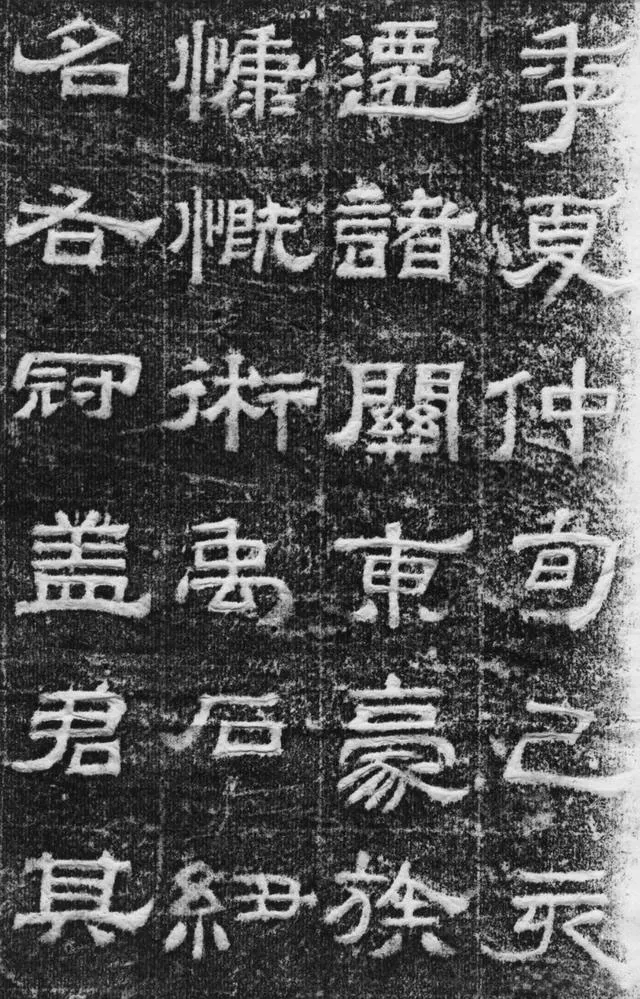 季夏仲旬己亥
遷諸關東豪族
慷慨術禹石紐
名右冠盖君其